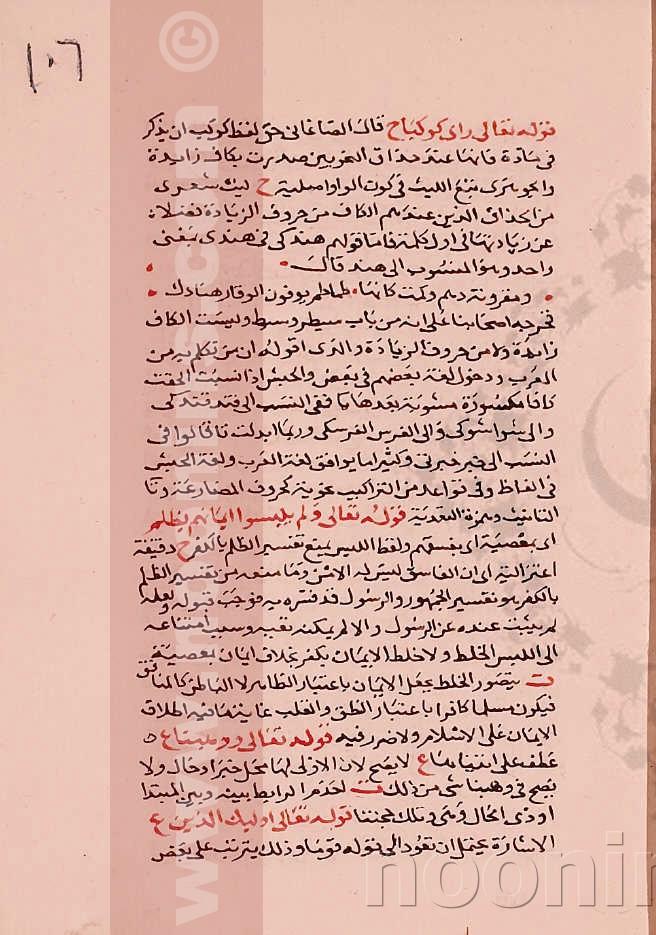 ١٠٦
قوله تعالى راى كوكبا ح قال الصاغانى حق لفظ كوكب ان يذكر
فى مادة فانها عند حذاق النحويين صدرت بكاف زايدة
والجوهرى تبع الليث فى كون الواو اصلية ح ليت شعرى
من احذاق الذين عندهم الكاف من حروف الزيادة فضلا
عن زيادتها فى اول كلمة فاما قولهم هندكى فى هندى بمعنى
واحد وهو المنسوب الى هند قال
ومقرونة دهم وكمت كانها طماطم يوفون الوقار هنادك
فخرجه اصحابنا على انه من باب سبط وسبطر وليست الكاف
زايدة ولا من حروف الزيادة والذى اقوله ان من تكلم به من
العرب ودخول لغة بعضهم فى بعض والحبش اذا نسبت الحقت
كافا مكسورة مشوبة بعدها يا ففى النسب الى قند قندكى
والى شوا شوكى والى الفرس الفرسكى وربما ابدلت تا قالوا فى
النسب الى خبر خبرتى وكثيرا ما يوافق لغة العرب ولغة الحبش
فى الفاظ وفى قواعد من التراكيب نحوية كحروف المضارعة وتا
التانيث وهمزة التعدية قوله تعالى ولم يلبسوا ايمانهم بظلم
اى بمعصية اى بفسقهم ولفظ اللبس يمنع تفسير الظلم بالكفر ح دقيقة
اعتزالية اى ان الفاسق ليس له الامن وما منعه من تفسير الظلم
بالكفر هو تفسير الجمهور والرسول قد فسره به فوجب قبوله ولعله
لم يثبت عنده عن الرسول والا لم يمكنه تعبه وسبب امتناعه
الى اللبس الخلط ولا خلط الايمان بكفر بخلاف ايمان بمعصية
ت يتصور الخلط بجعل الايمان باعتبار الظاهر لا الباطن كالمنافق
فيكون مسلما كافرا باعتبار النطق والقلب غاية ما فيه اطلاق
الايمان على الاسلام ولا ضرر فيه قوله تعالى ووهبنا ع
عطف على اتيناها ع لا يصح لان الاولى لها محل خبرا وحال ولا
يصح فى وهبنا شى من ذلك ت لعدم الرابط بينه وبين المبتدا
او ذى الحال وهى وتلك حجتنا قوله تعالى اوليك الذين ع
الاشارة يحتمل ان تعود الى قوله قوما وذلك يترتب على بعض